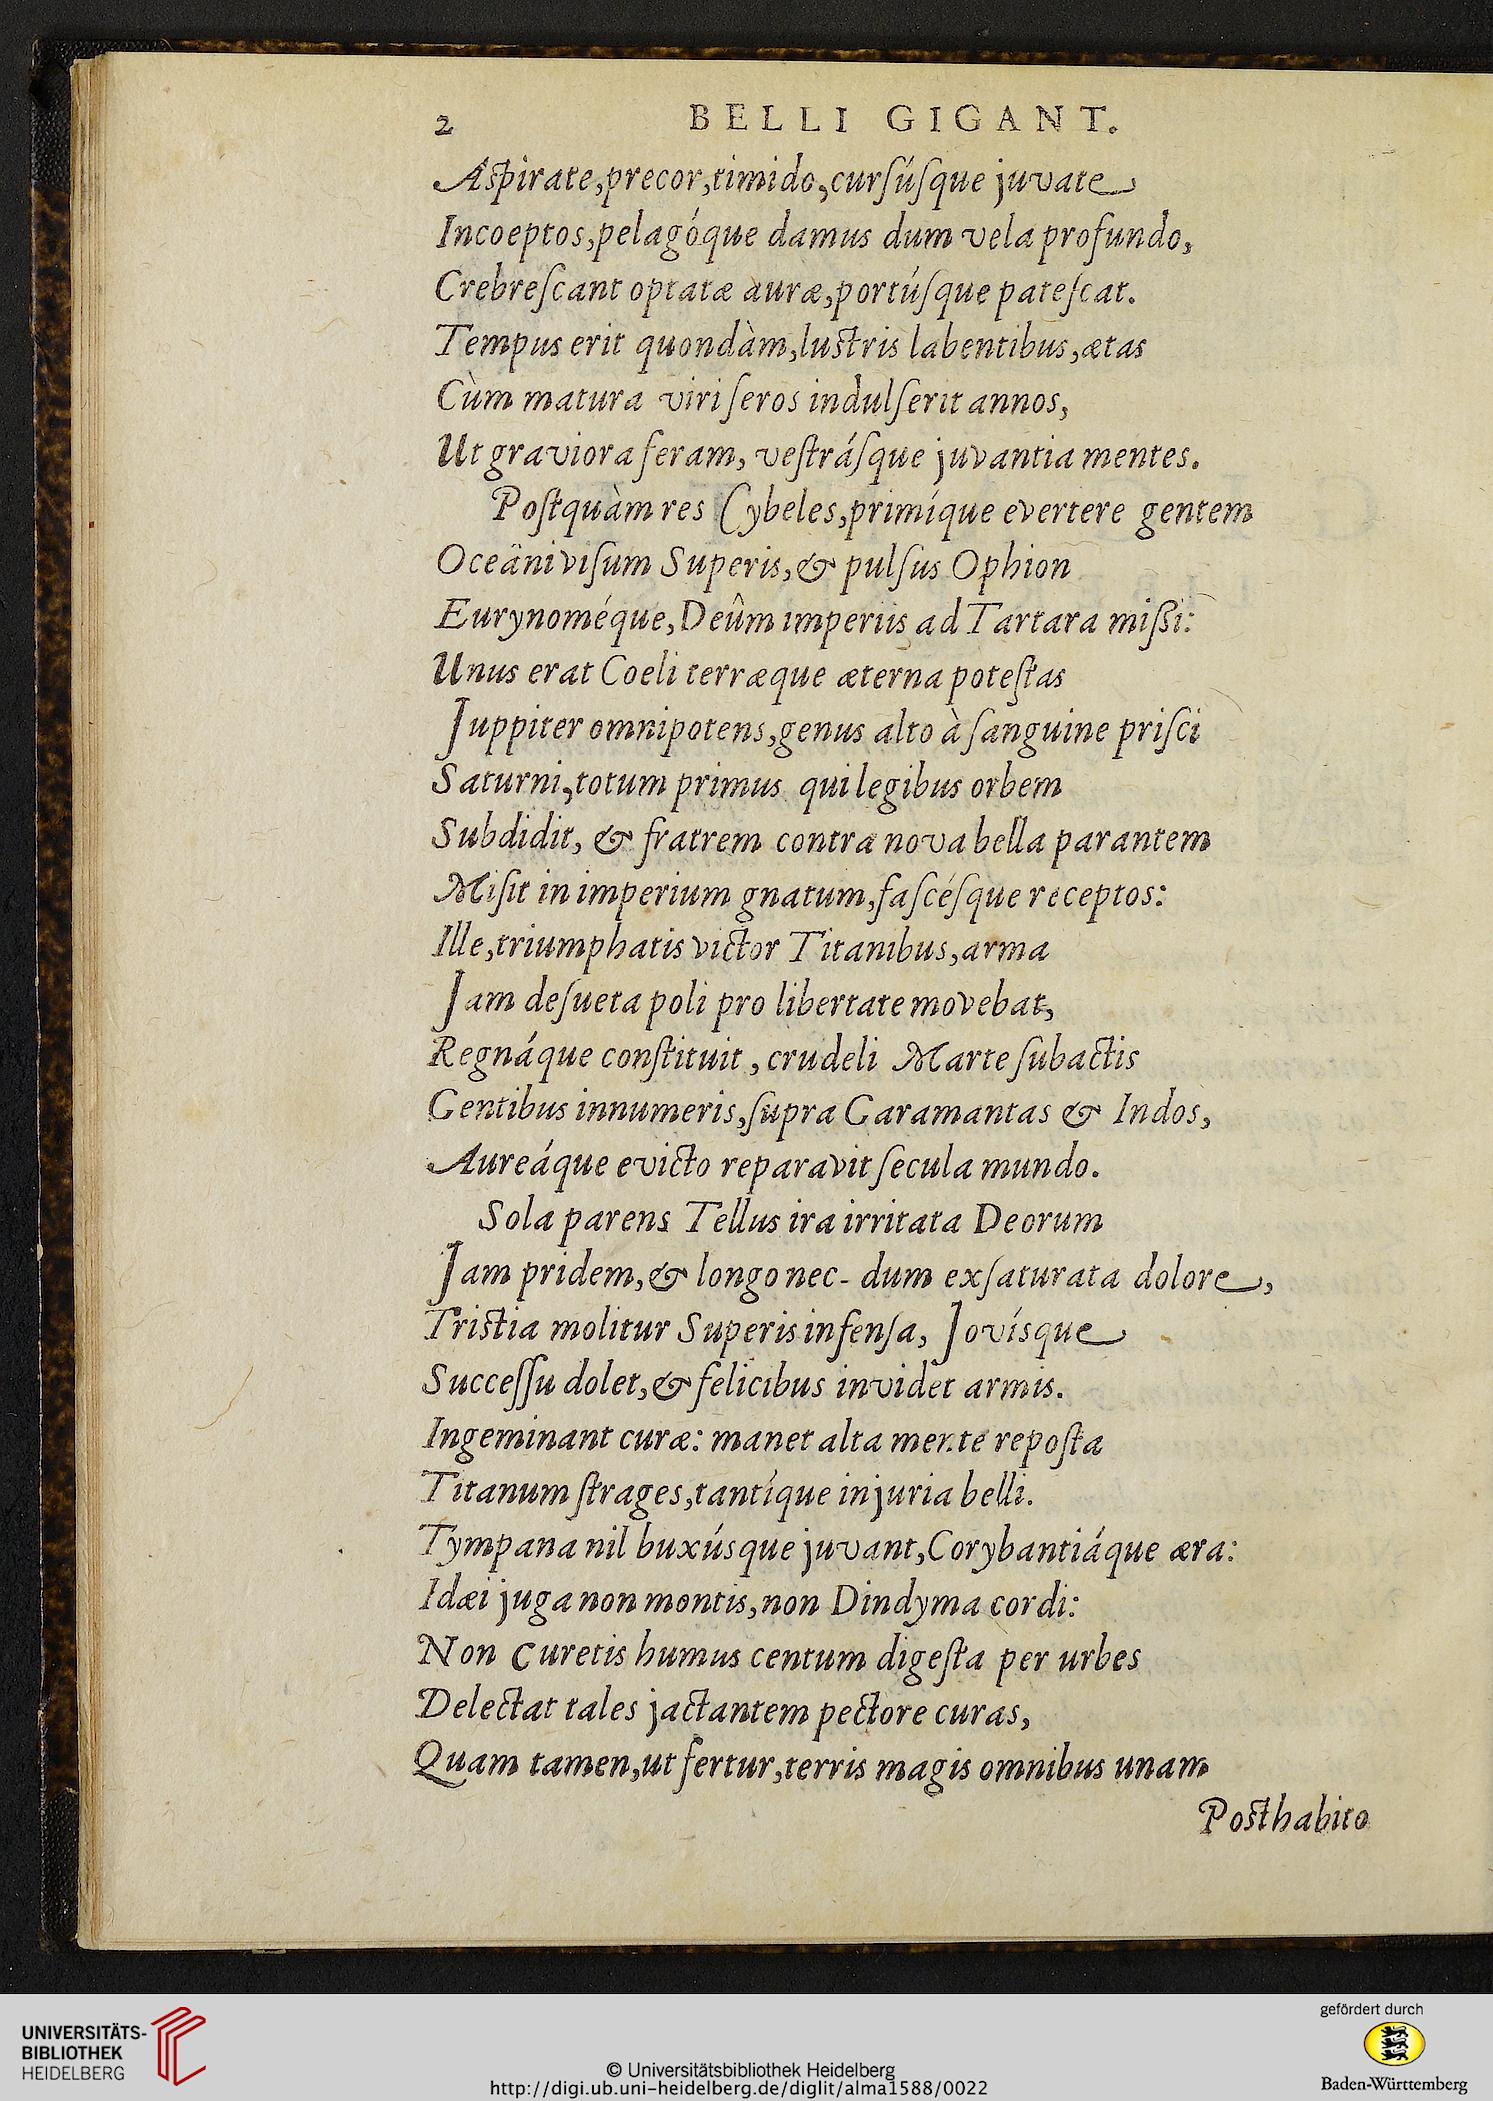 2 BELLI GIGANT.
Aspirate, precor, timido, cursúsque juvate
Incoeptos, pelagóque damus dum vela profundo,
Crebrescant optatæ auræ, portúsque patescat.
Tempus erit quondàm, lustris labentibus, ætas
Cùm matura viri seros indulserit annos,
Ut graviora feram, vestrásque juvantia mentes.
Postquàm res Cybeles, primíque evertere gentem
Oceäni visum Superis, & pulsus Ophion
Eurynoméque, Deûm imperiis ad Tartara missi:
Unus erat Coeli terræque æterna potestas
Juppiter omnipotens, genus alto à sanguine prisci
Saturni, totum primus qui legibus orbem
Subdidit, & fratrem contra nova bella parantem
Misit in imperium gnatum, fascésque receptos:
Ille, triumphatis victor Titanibus, arma
Jam desueta poli pro libertate movebat,
Regnáque constituit, crudeli Marte subactis
Gentibus innumeris, supra Garamantas & Indos,
Aureáque evicto reparavit secula mundo.
Sola parens Tellus ira irritata Deorum
Jam pridem, & longo nec-dum exsaturata dolore,
Tristia molitur Superis infensa, Jovísque
Successu dolet, & felicibus invidet armis.
Ingeminant curæ: manet alta mente reposta
Titanum strages, tantíque injuria belli.
Tympana nil buxúsque juvant, Corybantiáque æra:
Idæi juga non montis, non Dindyma cordi:
Non Curetis humus centum digesta per urbes
Delectat tales jactantem pectore curas,
Quam tamen, ut fertur, terris magis omnibus unam
Posthabito
UNIVERSITÄTS-
BIBLIOTHEK
HEIDELBERG
© Universitätsbibliothek Heidelberg
http://digi.ub.uni-heidelberg.de/diglit/alma1588/0022
gefördert durch
Baden-Württemberg